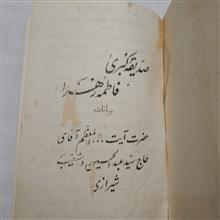 صدیقه کبری
فاطمه زهرا
بیانات
حضرت آیت ... المعظم آقای
حاج سید عبدالحسین دستغیب
شیرازی